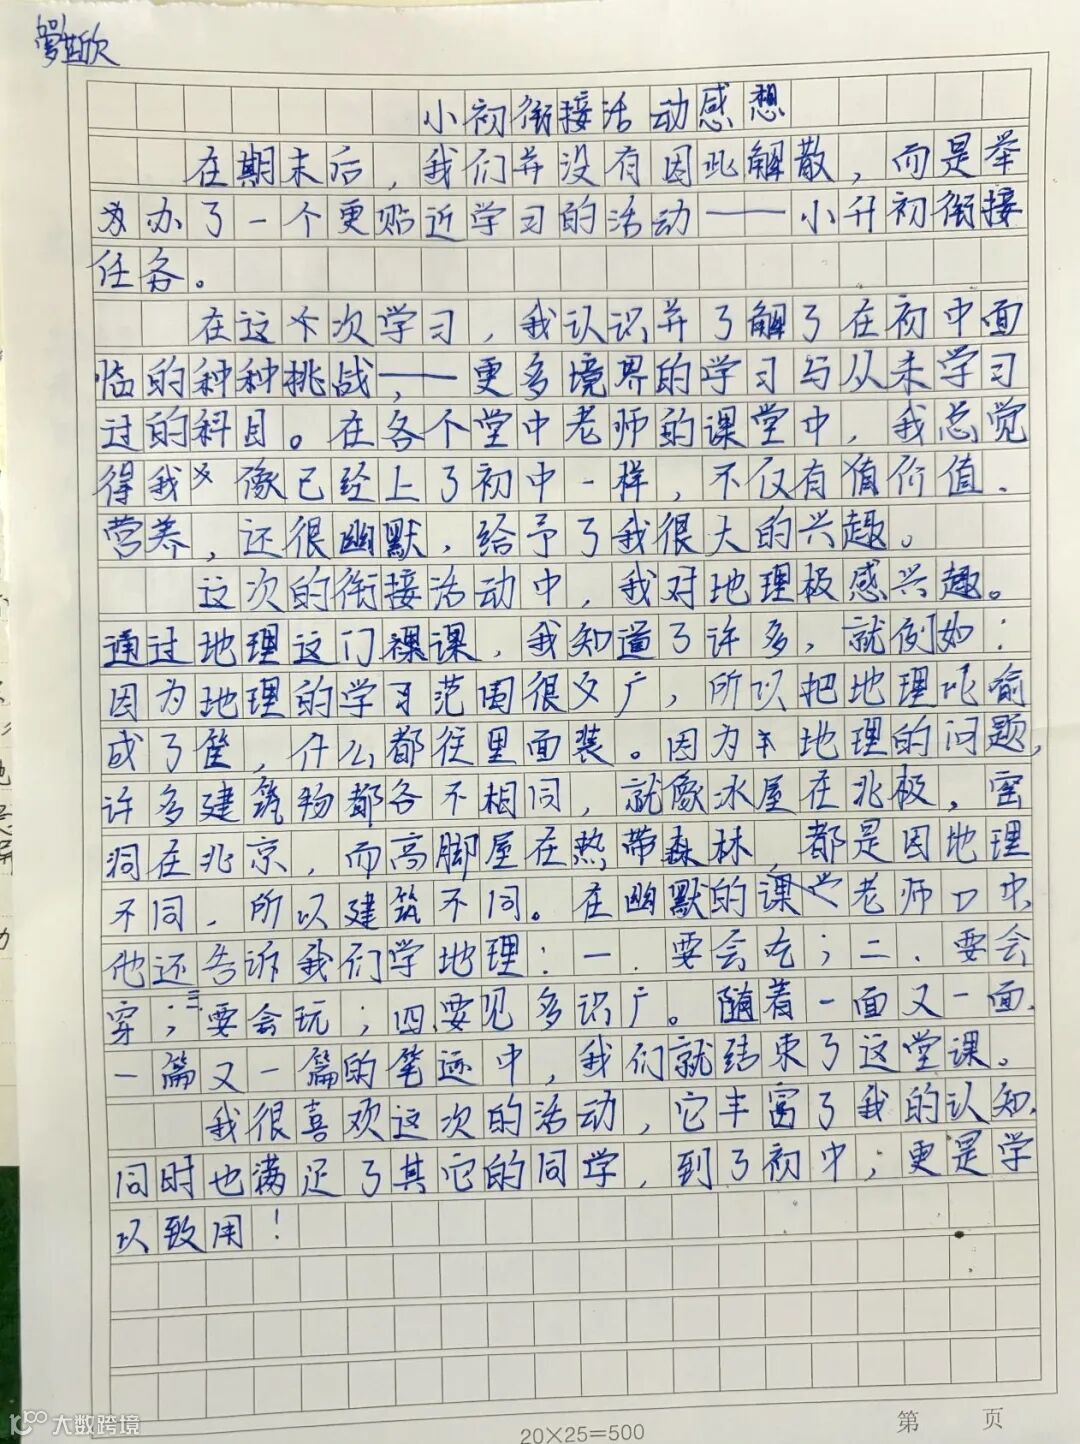 小初衔接活动感想
在期末后，我们并没有因此解散，而是举
办了一个更贴近学习的活动——小升初衔接
任务。
在这次学习，我认识并了解了在初中面
临的种种挑战，——更多境界的学习与从未学习
过的科目。在各个堂中老师的课堂中，我总觉
得我像已经上了初中一样，不仅有值价值、
营养，还很幽默，给予了我很大的兴趣。
这次的衔接活动中，我对地理极感兴趣。
通过地理这门课，我知道了许多，就例如：
因为地理的学习范围很文广，所以把地理比喻
成了筐，什么都往里面装。因为地理的问题，
许多建筑物都各不相同，就像冰屋在北极，窑
洞在北京，而高脚屋在热带森林，都是因地理
不同，所以建筑不同。在幽默的课堂老师口中，
他还告诉我们学地理：一、要会吃；二、要会
穿；三、要会玩；四、要见多识广。随着一面又一面，
一篇又一篇的笔迹中，我们就结束了这堂课。
我很喜欢这次的活动，它丰富了我的认知，
同时也满足了其它的同学，到了初中；更是学
以致用！
20×25=500
第 页
大数跨境